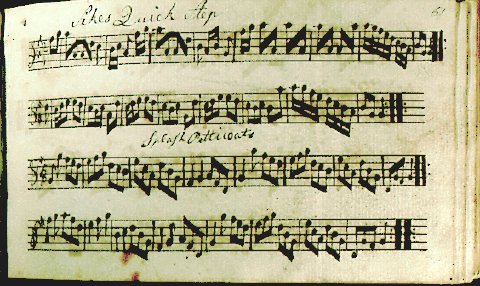 Sikes Quick Step
61
Splash Petticoats